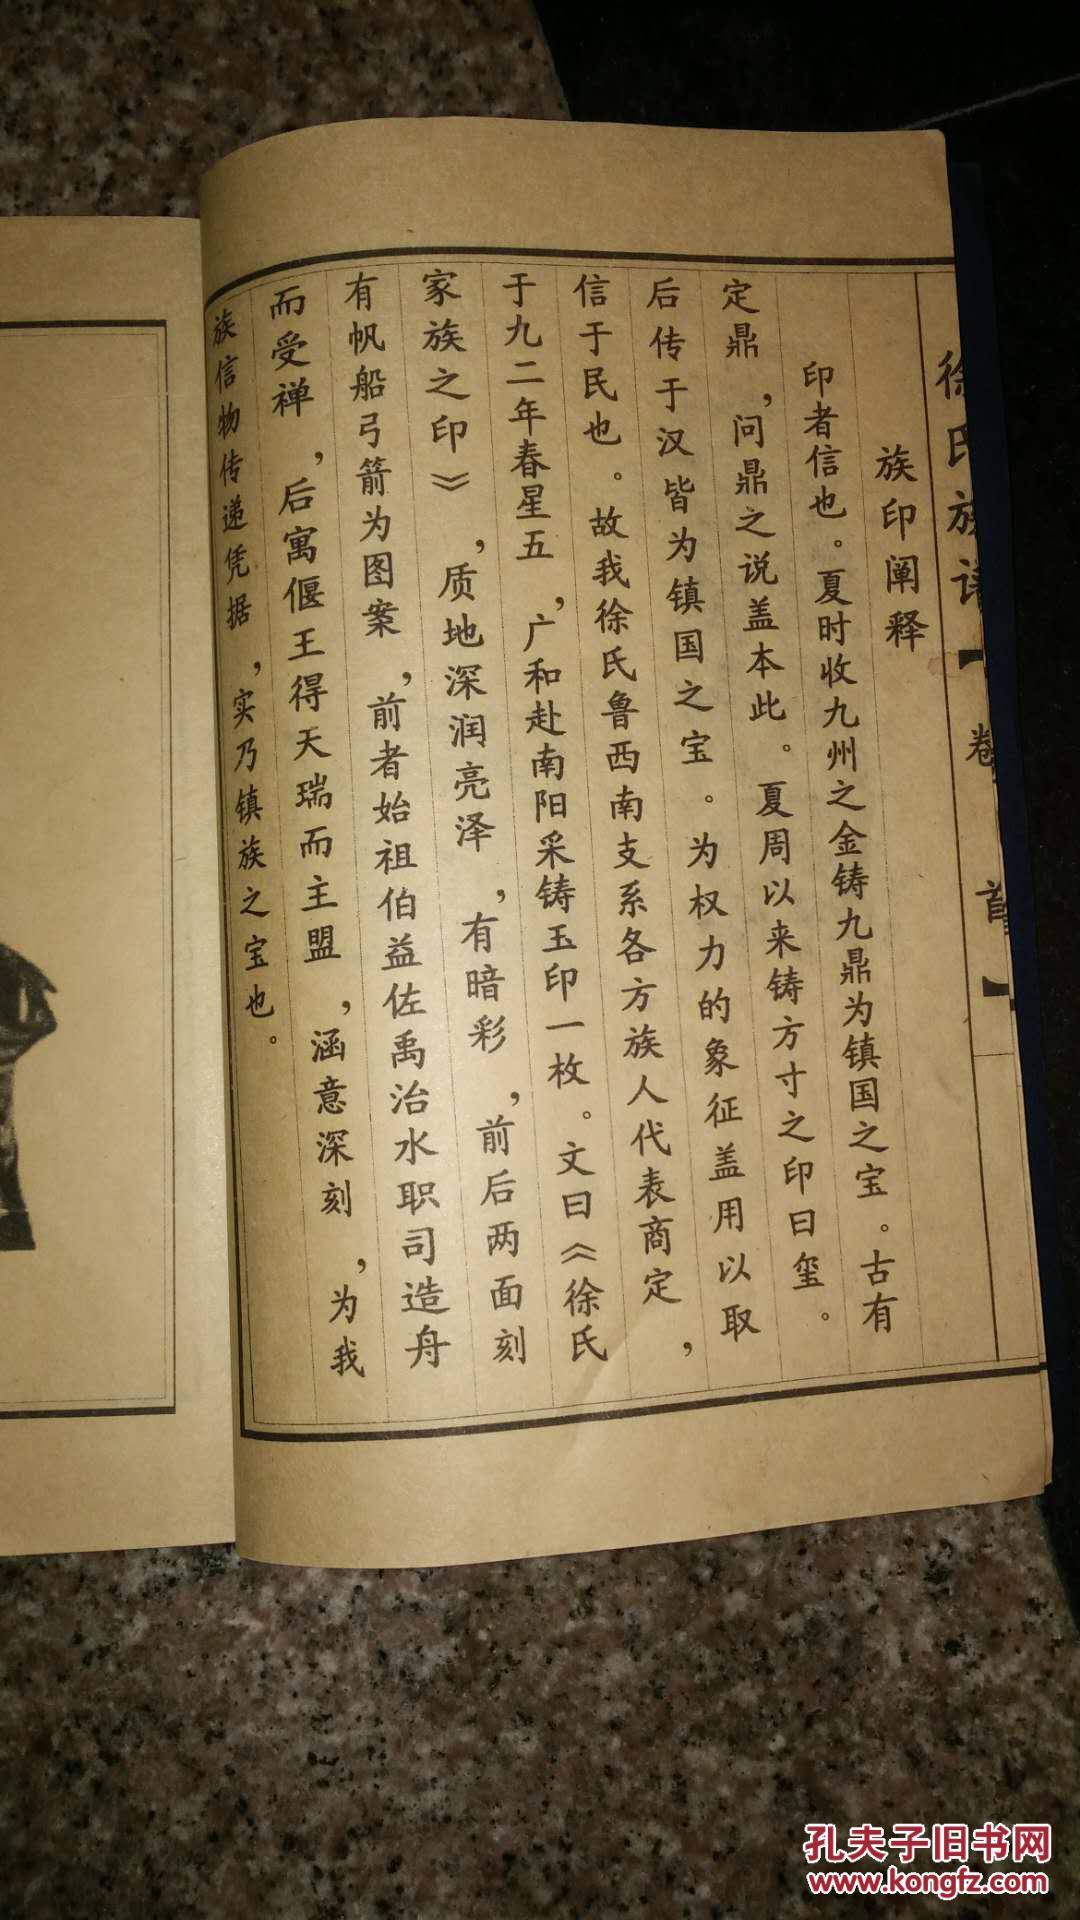 徐氏族谱【卷首】
族印阐释
印者信也。夏时收九州之金铸九鼎为镇国之宝。古有
定鼎，问鼎之说盖本此。夏周以来铸方寸之印曰玺。
后传于汉皆为镇国之宝。为权力的象征盖用以取
信于民也。故我徐氏鲁西南支系各方族人代表商定，
于九二年春星五，广和赴南阳采铸玉印一枚。文曰《徐氏
家族之印》，质地深润亮泽，有暗彩，前后两面刻
有帆船弓箭为图案，前者始祖伯益佐禹治水职司造舟
而受禅，后寓偃王得天瑞而主盟，涵意深刻，为我
族信物传递凭据，实乃镇族之宝也。
孔夫子旧书网
www.kongfz.com